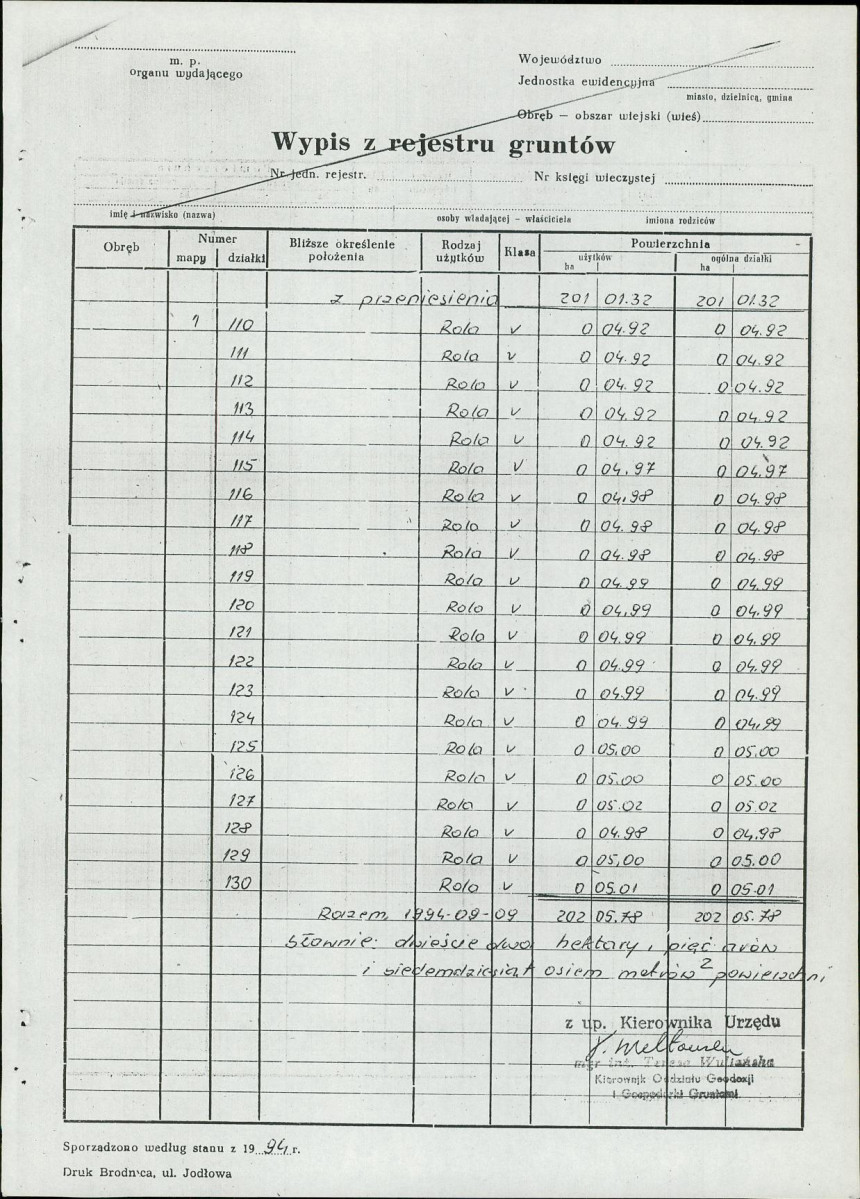 m. p.
organu wydającego
Województwo
Jednostka ewidencyjna
miasto, dzielnica, gmina
Obręb — obszar wiejski (wieś)
Wypis z rejestru gruntów
Nr jedn. rejestr. Nr księgi wieczystej
imię i nazwisko (nazwa) osoby władającej - właściciela imiona rodziców
Obręb Numer Bliższe określenie położenia Rodzaj użytków Klasa Powierzchnia
mapy działki użytków ogólna działki
ha ha
z przeniesienia 201 01.32 201 01.32
1 110 Rola V 0 04.92 0 04.92
111 Rola V 0 04.92 0 04.92
112 Rola V 0 04.92 0 04.92
113 Rola V 0 04.92 0 04.92
114 Rola V 0 04.92 0 04.92
115 Rola V 0 04.97 0 04.97
116 Rola V 0 04.98 0 04.98
117 Rola V 0 04.98 0 04.98
118 Rola V 0 04.98 0 04.98
119 Rola V 0 04.99 0 04.99
120 Rola V 0 04.99 0 04.99
121 Rola V 0 04.99 0 04.99
122 Rola V 0 04.99 0 04.99
123 Rola V 0 04.99 0 04.99
124 Rola V 0 04.99 0 04.99
125 Rola V 0 05.00 0 05.00
126 Rola V 0 05.00 0 05.00
127 Rola V 0 05.02 0 05.02
128 Rola V 0 04.98 0 04.98
129 Rola V 0 05.00 0 05.00
130 Rola V 0 05.01 0 05.01
Razem 1994-09-09 202 05.78 202 05.78
słownie: dwieście dwa hektary, pięć arów
i siedemdziesiąt osiem metrów² powierzchni
z up. Kierownika Urzędu
mgr inż. Teresa
Kierownik Oddziału Geodezji
i Gospodarki Gruntami
Sporządzono według stanu z 1994 r.
Druk Brodnica, ul. Jodłowa